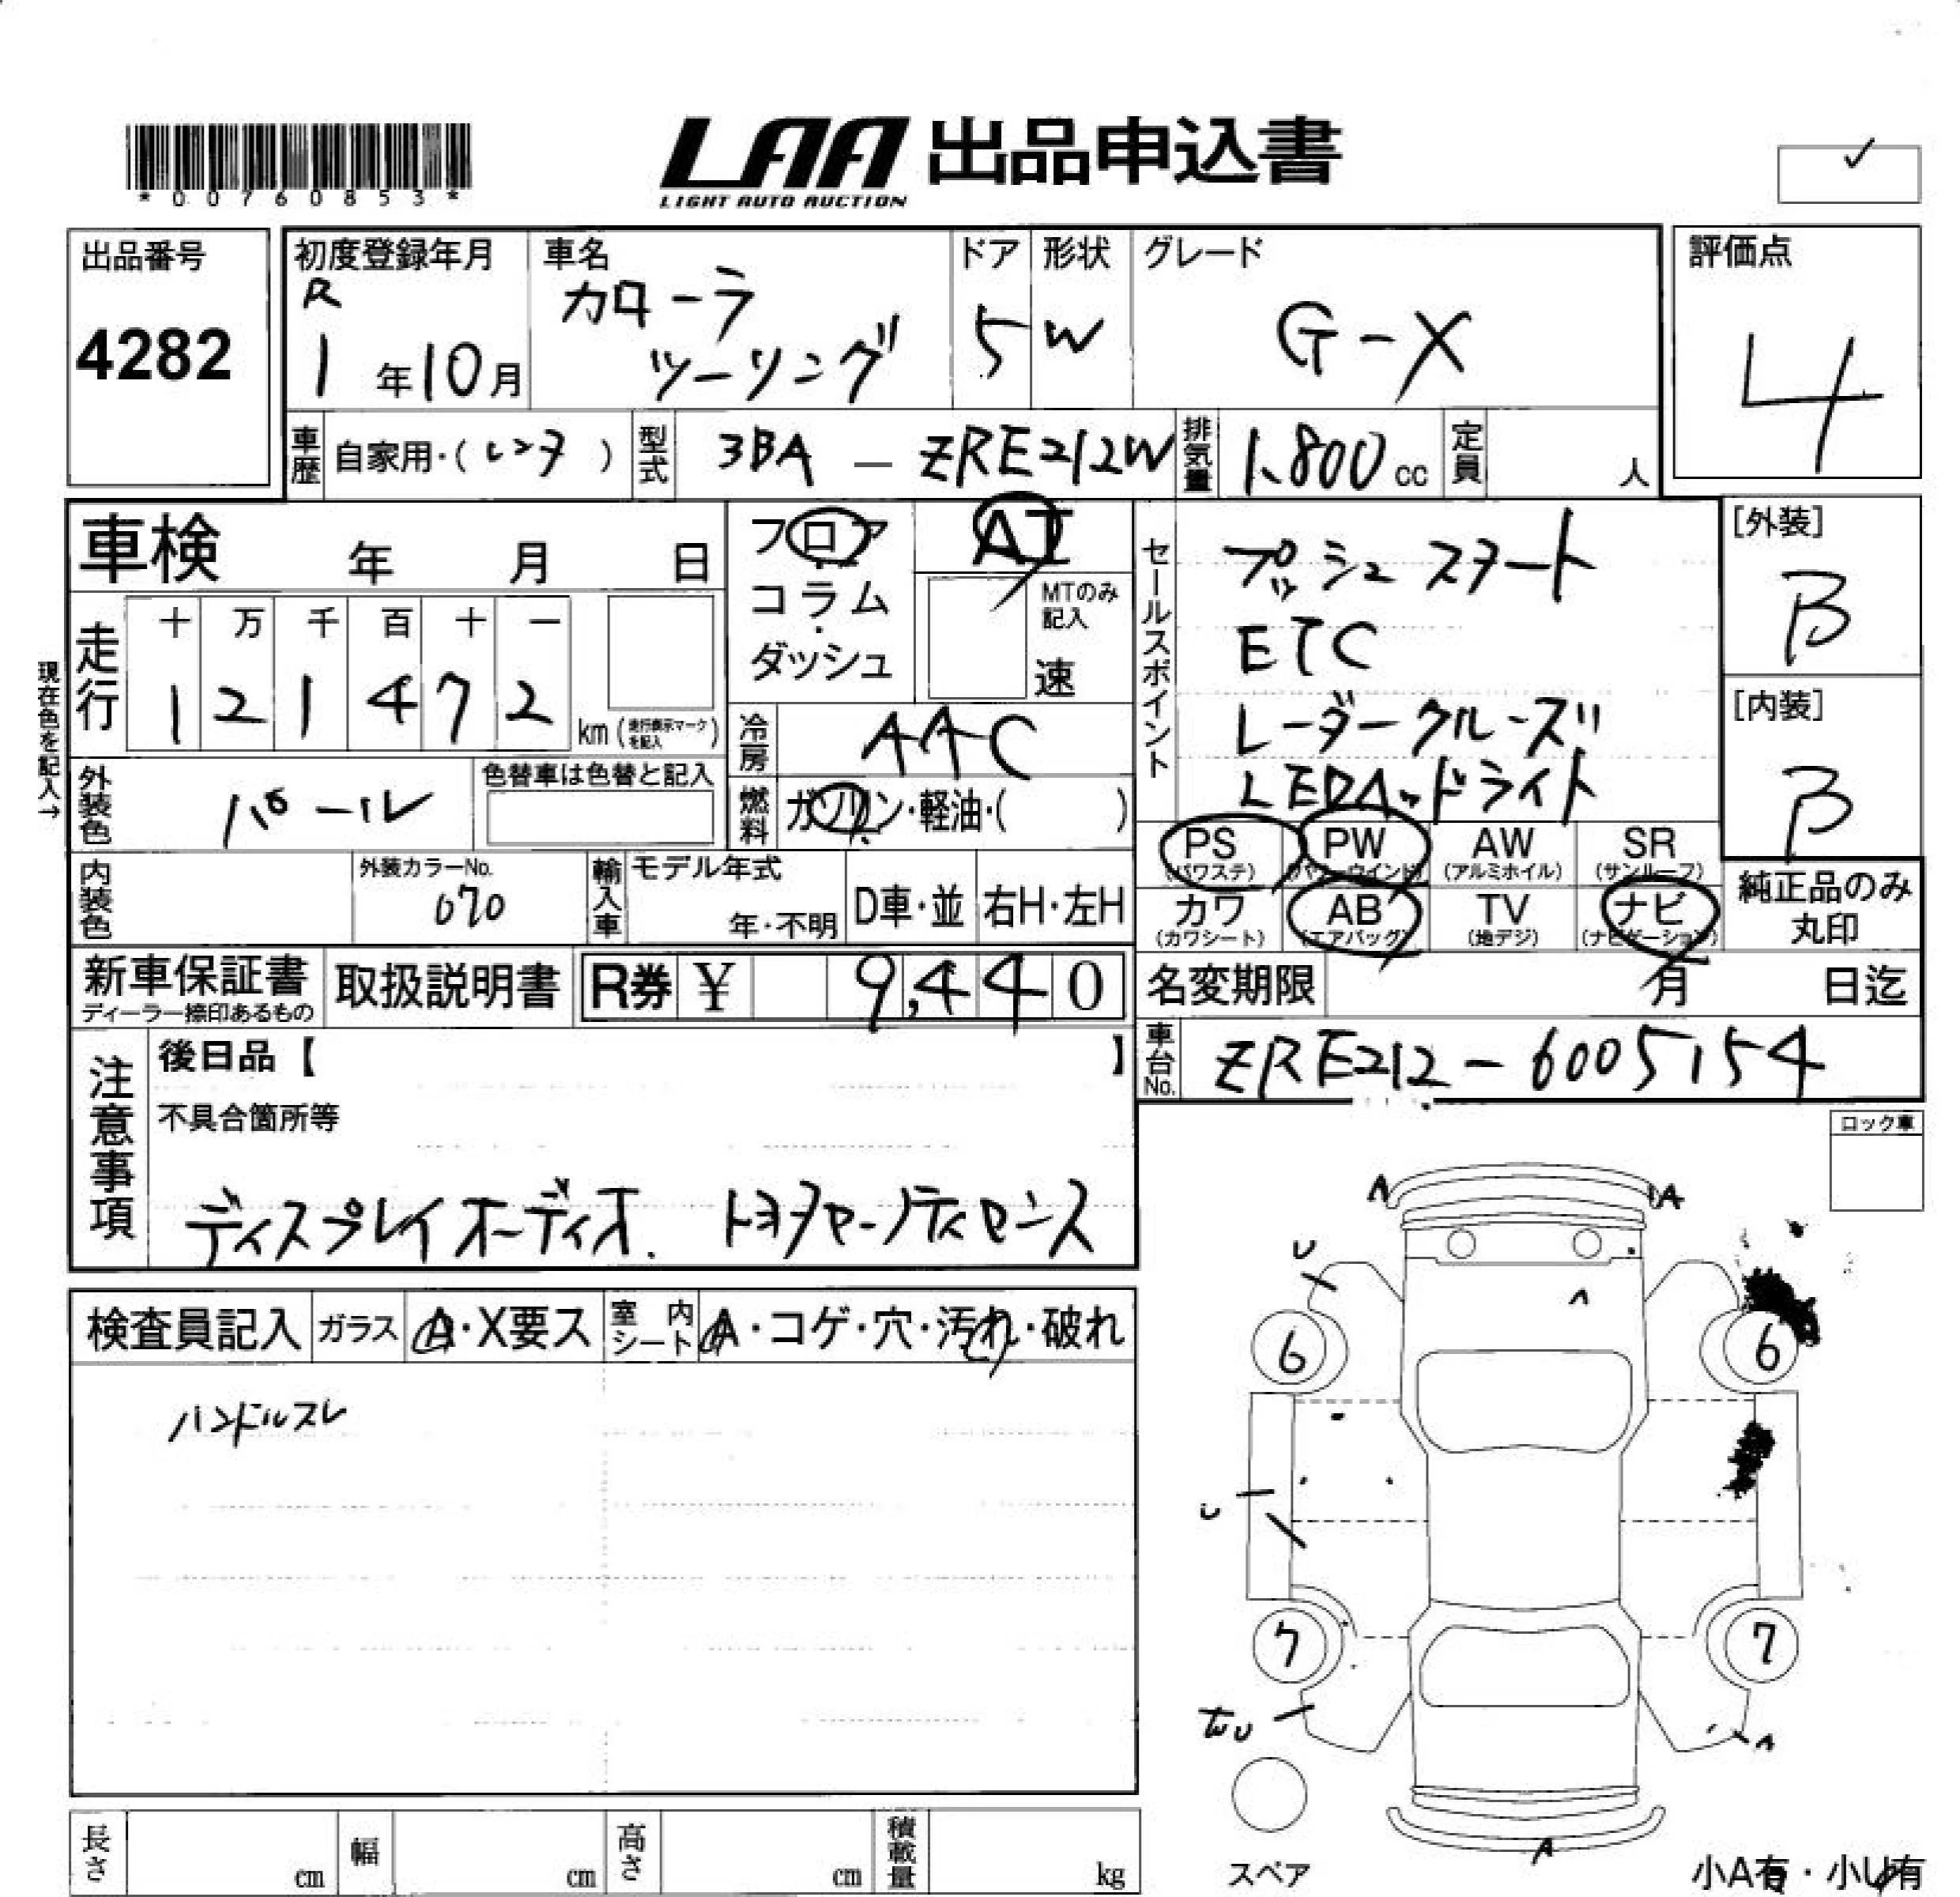 *00760853*
LAA 出品申込書
LIGHT AUTO AUCTION
出品番号
4282
初度登録年月
R
1年10月
車名
カローラ
ツーリング
ドア
5
形状
W
グレード
G-X
評価点
4
車歴
自家用・(レンタ)
型式
3BA - ZRE212W
排気量
1,800cc
定員
人
車検 年 月 日
現在色を記入→
走行
十 万 千 百 十 一
1 2 1 4 7 2
km(走行表示マークを記入)
フロア
コラム
ダッシュ
AT
MTのみ
記入
速
冷房
AAC
燃料
ガソリン・軽油・( )
外装色
パール
色替車は色替と記入
内装色
外装カラーNo.
070
輸入車
モデル年式
年・不明
D車・並
右H・左H
セールスポイント
プッシュスタート
ETC
レーダークルーズ
LEDヘッドライト
[外装]
B
[内装]
B
PS
(パワステ)
PW
(パワーウインド)
AW
(アルミホイル)
SR
(サンルーフ)
カワ
(カワシート)
AB
(エアバッグ)
TV
(地デジ)
ナビ
(ナビゲーション)
純正品のみ
丸印
新車保証書
ディーラー捺印あるもの
取扱説明書
R券 ¥ 9,440
名変期限 月 日迄
車台No.
ZRE212-6005154
注意事項
後日品【 】
不具合箇所等
ディスプレイオーディオ. トヨタセーフティセンス
ロック車
検査員記入
ガラス
A・X要ス
室内
シート
A・コゲ・穴・汚れ・破れ
ハンドルスレ
A
A
U
A
6
6
U
7
7
A
A
スペア
小A有・小U有
長さ
cm
幅
cm
高さ
cm
積載量
kg